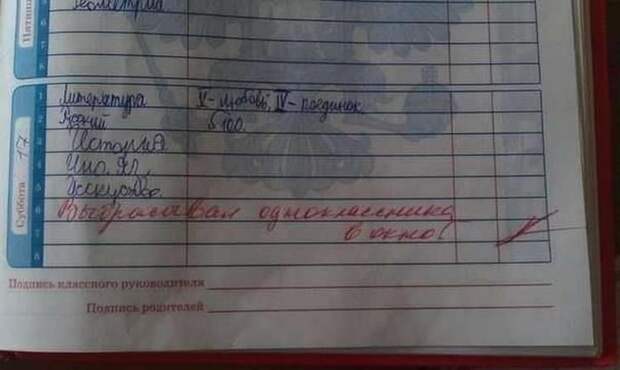 Геометрия
6
7
8
Суббота 17
1 Литература V - любовь, IV - поединок
2 100.
3 История
4 Ино. Яз.
5 Искусство
6 Выбрасывал одноклассника
7 в окно!
8
Подпись классного руководителя
Подпись родителей